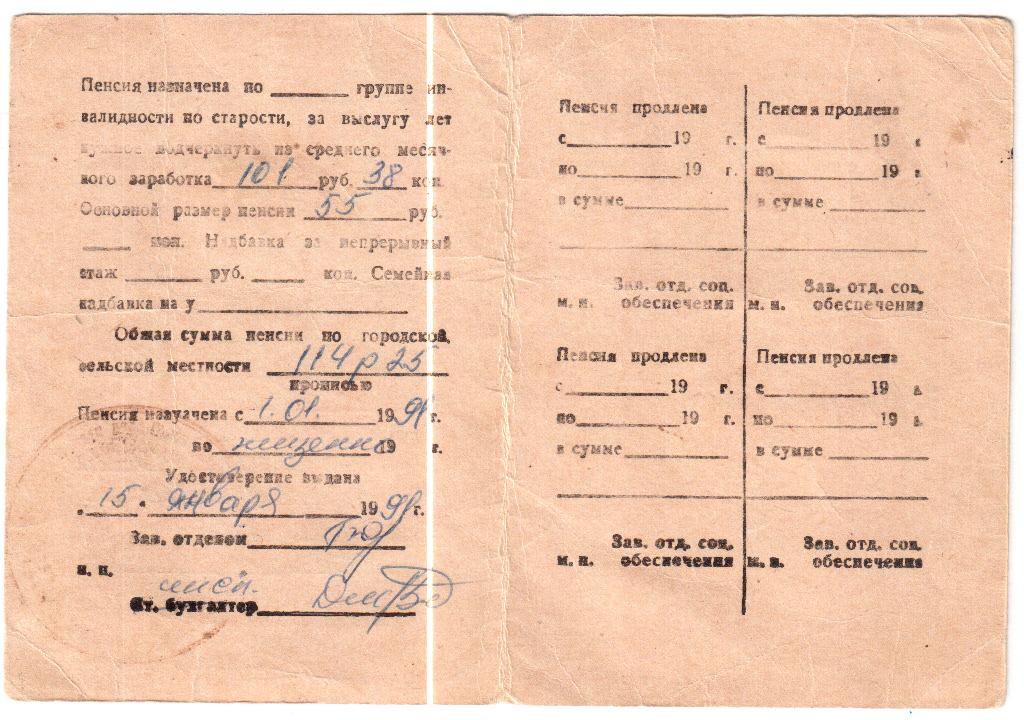 Пенсия назначена по ______ группе ин-
валидности по старости, за выслугу лет
нужное подчеркнуть из среднего месяч-
ного заработка 101 руб. 38 коп.
Основной размер пенсии 55 руб.
____ коп. Надбавка за непрерывный
стаж ______ руб. ____ коп. Семейная
надбавка на у
Общая сумма пенсии по городской,
сельской местности 114 р 25
прописью
Пенсия назуачена с 1.01. 1991 г.
по 19 г.
Удостоверение выдана
„15" января 1991 г.
Зав. отделом
м. п.
Ст. бухгалтер
Пенсия продлена
с ______ 19 г.
по ______ 19 г.
в сумме
Зав. отд. соц.
м. п. обеспечения
Пенсия продлена
с ______ 19 г.
по ______ 19 г.
в сумме
Зав. отд. соц.
м. п. обеспечения
Пенсия продлена
с ______ 19 г.
по ______ 19 г.
в сумме
Зав. отд. соц.
м. п. обеспечения
Пенсия продлена
с ______ 19 г.
по ______ 19 г.
в сумме
Зав. отд. соц.
м. п. обеспечения